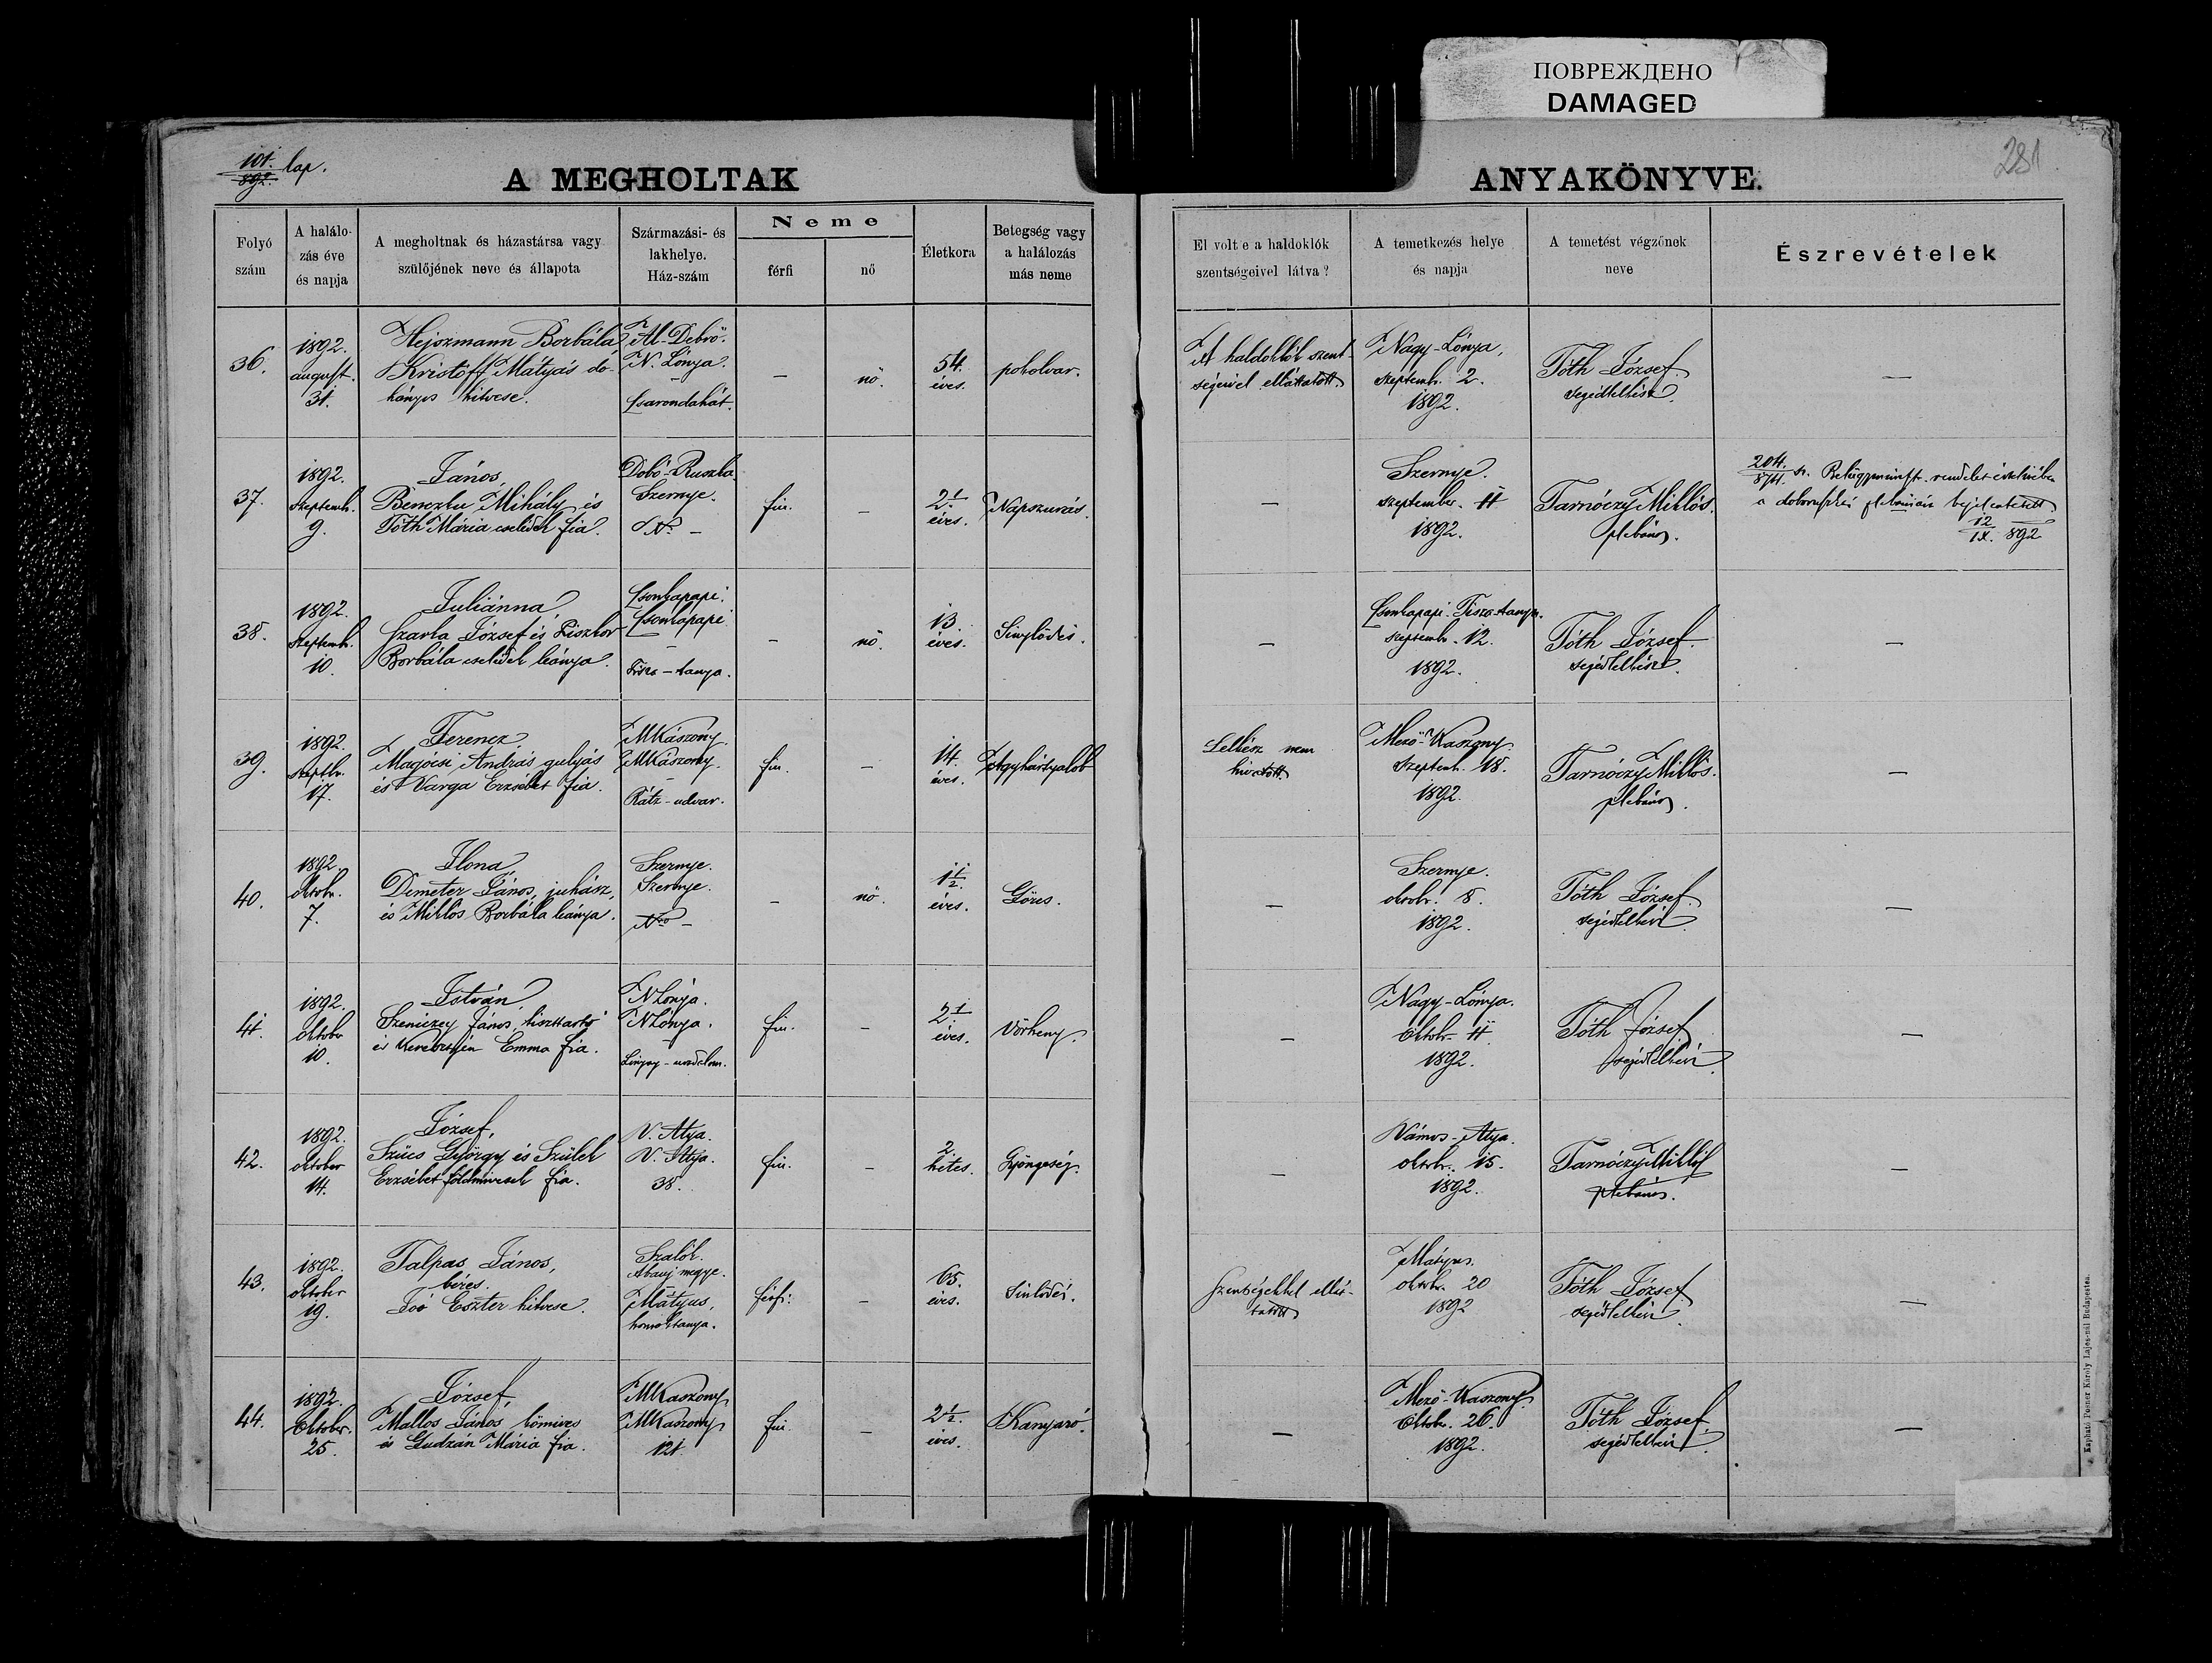 ПОВРЕЖДЕНО
DAMAGED
101.
892. lap.
281
A MEGHOLTAK
ANYAKÖNYVE.
Folyó szám
A halálozás éve és napja
A megholtnak és házastársa vagy szülőjének neve és állapota
Származási- és lakhelye. Ház-szám
Neme
férfi
nő
Életkora
Betegség vagy a halálozás más neme
El volt e a haldoklók szentségeivel látva?
A temetkezés helye és napja
A temetést végzőnek neve
Észrevételek
36.
1892.
august.
31.
Hejszmann Borbála
Kristóff Mátyás do-
hányos hitvese.
Al-Debrö.
N. Lónya.
–
Csarondahát.
–
nö.
54.
éves.
pokolvar.
A haldoklók szent-
ségeivel elláttatott.
Nagy-Lónya,
septemb. 2.
1892.
Tóth József
segédlelkész
—
37.
1892.
Septemb.
9.
János,
Benczku Mihály és
Tóth Mária cselédek fia.
Dobó-Ruszka.
Szernye.
No –
fiu.
–
2 1/2
éves.
Napszurás.
–
Szernye.
september 11
1892.
Tarnóczy Miklós.
plebános.
204.
874. sz. Belügyminist. rendelet értelmében
a dobóruszkai plebániára bejelentetett
12
IX. 892
38.
1892.
Septemb.
10.
Juliánna,
Szarka József és Piszkor
Borbála cselédek leánya.
Csonkapapi.
Csonkapapi.
–
Tisza-tanya.
–
nö.
13.
éves.
Sinylödés.
–
Csonkapapi-Tisza-tanya.
septemb. 12.
1892.
Tóth József
segédlelkész
—
39.
1892.
Septb.
17.
Ferencz,
Magócsi András gulyás
és Varga Erzsébet fia.
MKászony.
MKászony.
–
Rátz-udvar.
fiu.
–
14.
éves.
Agyhártyalob
Lelkész nem
hivatott
Mezö-Kaszony
Septemb. 18.
1892.
Tarnóczy Miklós.
plebános.
—
40.
1892.
oktobr.
7.
Ilona,
Demeter János, juhász,
és Miklós Borbála leánya.
Szernye.
Szernye.
No –
–
nö.
1 1/2.
éves.
Görcs.
–
Szernye.
oktobr. 8.
1892.
Tóth József
segédlelkész
—
41.
1892.
oktobr
10.
István
János, tiszttartó
és Emma fia.
NLónya.
NLónya.
–
Lónyay-uradalom.
fiu.
–
2 1/2
éves.
Vörheny.
–
Nagy-Lónya.
Oktobr. 11
1892.
Tóth József
segédlelkész
—
42.
1892.
oktober
14.
József,
Szücs György és Szülek
Erzsébet földmivesek fia.
V. Atya.
V. Atya.
38.
fiu.
–
2.
hetes.
Gyöngeség.
–
Vámos-Atya.
oktobr. 15.
1892.
Tarnóczy Miklós
plebános.
—
43.
1892.
oktober
19.
Talpas János,
béres.
Joó Eszter hitvese.
Szalók.
Abauj megye.
–
Mátyus,
homoktanya.
férfi.
–
65.
éves.
Sinlödés.
Szentségekkel ellát-
tatott
Mátyus.
oktobr. 20
1892
Tóth József
segédlelkész
—
44.
1892.
Oktober.
25.
József,
Mallos János kömives
és Gudzán Mária fia.
MKaszony
MKaszony
121
fiu.
–
2 1/2.
éves.
Kanyaró.
–
Mezö-Kaszony
Oktobr. 26.
1892.
Tóth József
segédlelkész
—
Kapható Posner Károly Lajos-nál Budapesten.